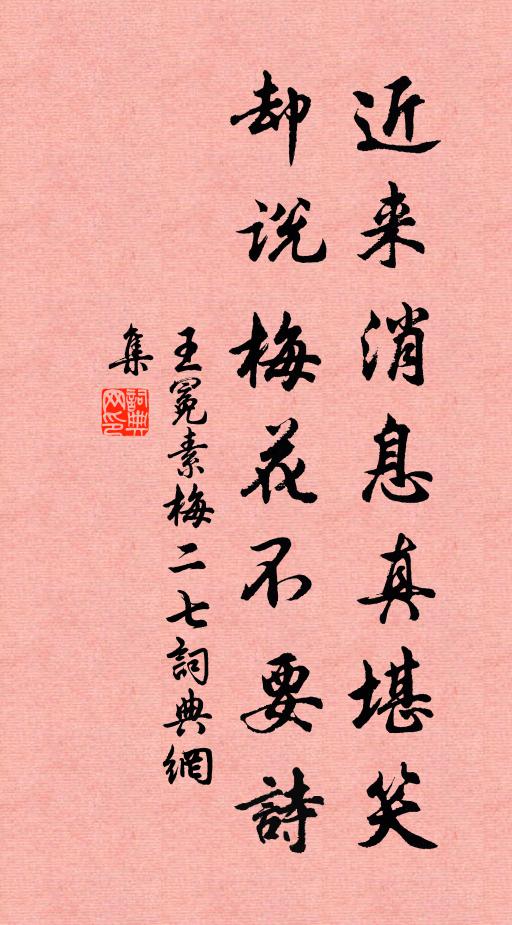 近来消息真堪笑
却说梅花不要詩
王冕素梅二七詞典網
集
詞典网印